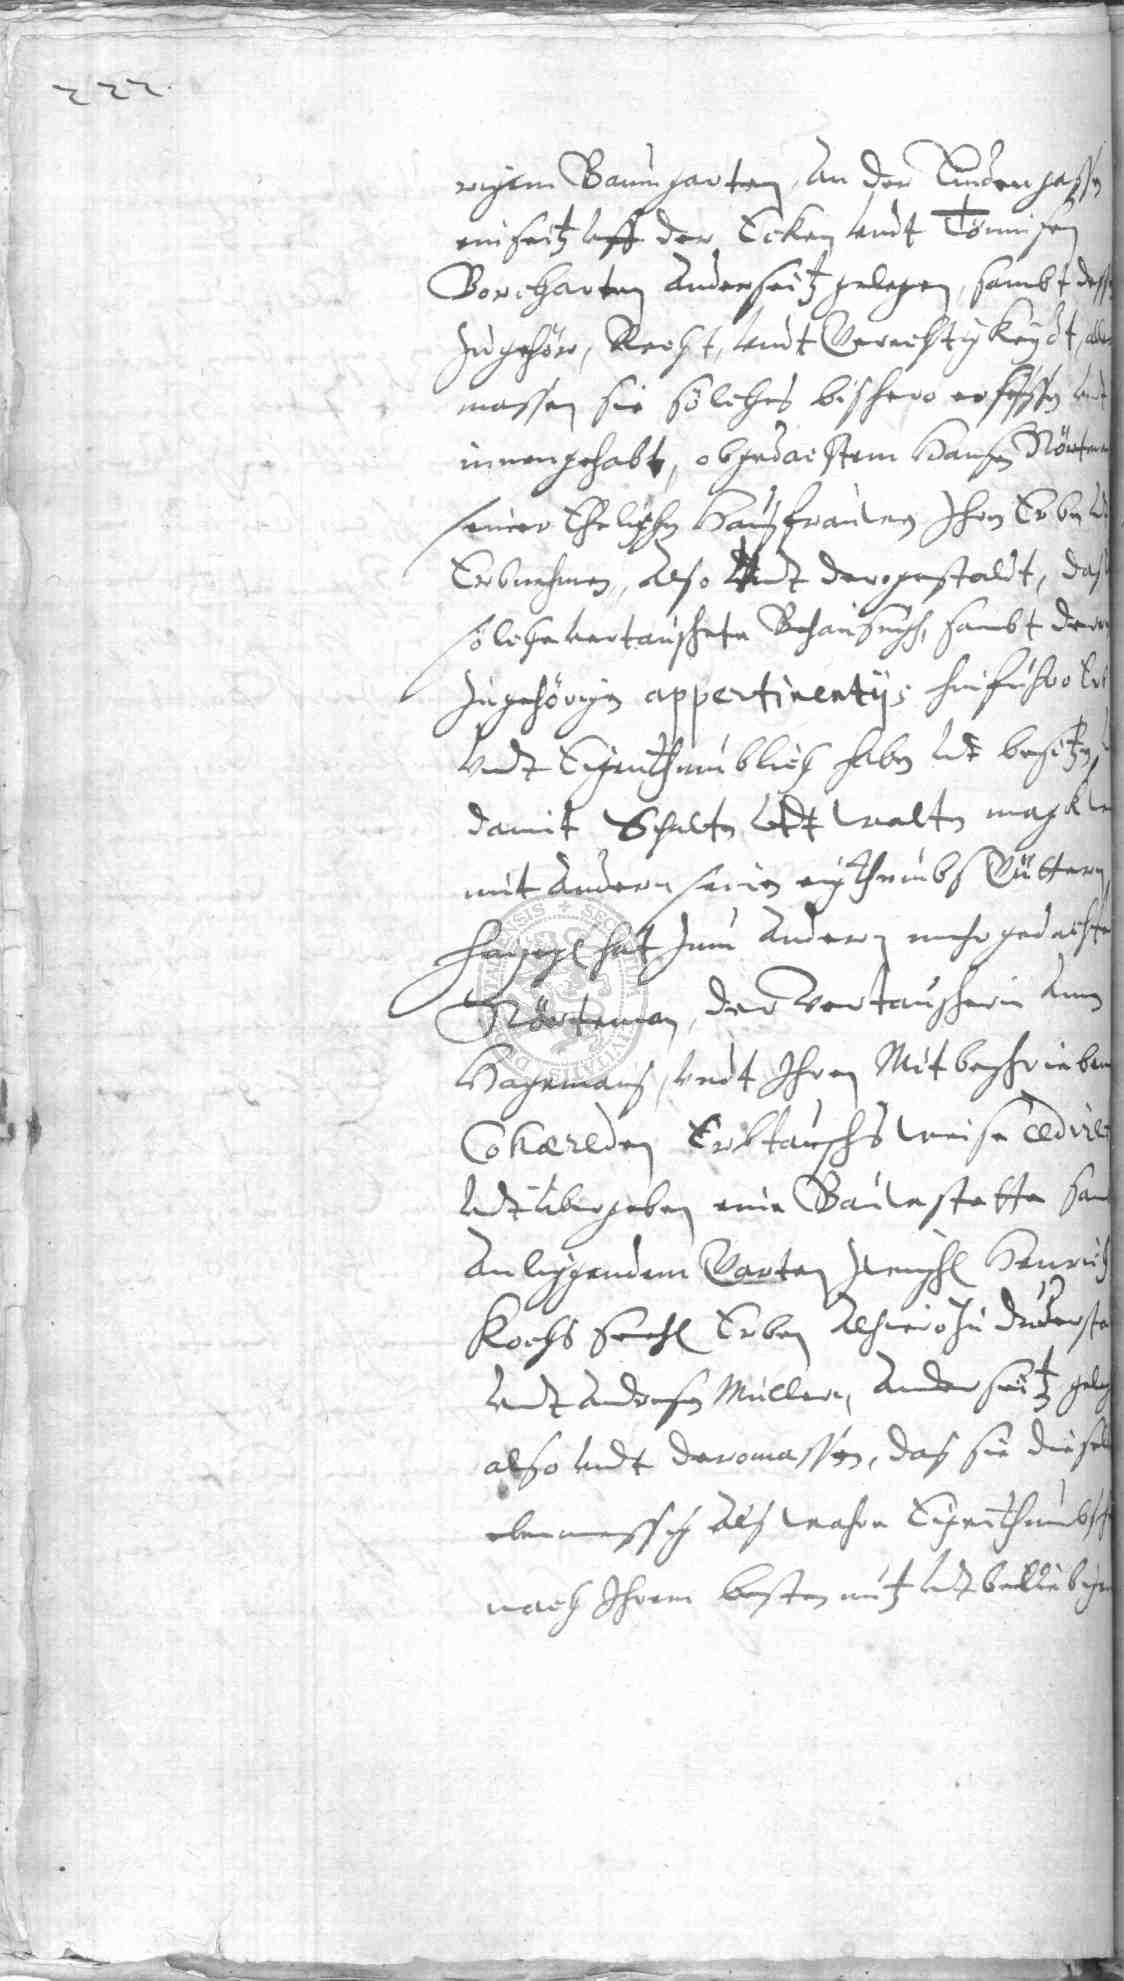 222.
rigem Baumgarten, an der Lindengassen
einseitz uff der Ecken undt Tönnissen
Borcharten anderseitz gelegen, sambt dess
zugehör, Recht, undt Gerechtigkeydt, aller
massen sie solches bishero ersessen undt
innengehabt, obgedachtem Hansen Nörteman
seiner Ehelichen Haussfrauwen Ihren Erben
Erbnehmen, also undt dergestaldt, dass
solche vertauschete Behausungh, sambt deren
zugehörigen appertinentijs hinfuhro
undt Eigenthumblich haben undt besitzen,
damit Schalten undt walten magk
mit andern seinen eigenthumbs Güttern,
hargegen hat zum andern mehrgedachter
Nörteman, der Vertauscherin Ann
Hagemans, undt Ihren Mitbeschrieben
Cohæreden Erbtauschs weise cedirt
undt ubergeben eine Bauwstette sambt
anliggendem Garten zwischen Henrich
Kochs seehl Erben alhiero zu Duderstadt
undt Andresen Müllern, anderseitz gelegen
also undt deromassen, das sie dieselbe
ebenmessig als wahre Eigenthumbs
nach Ihrem besten nutz undt beliebigen